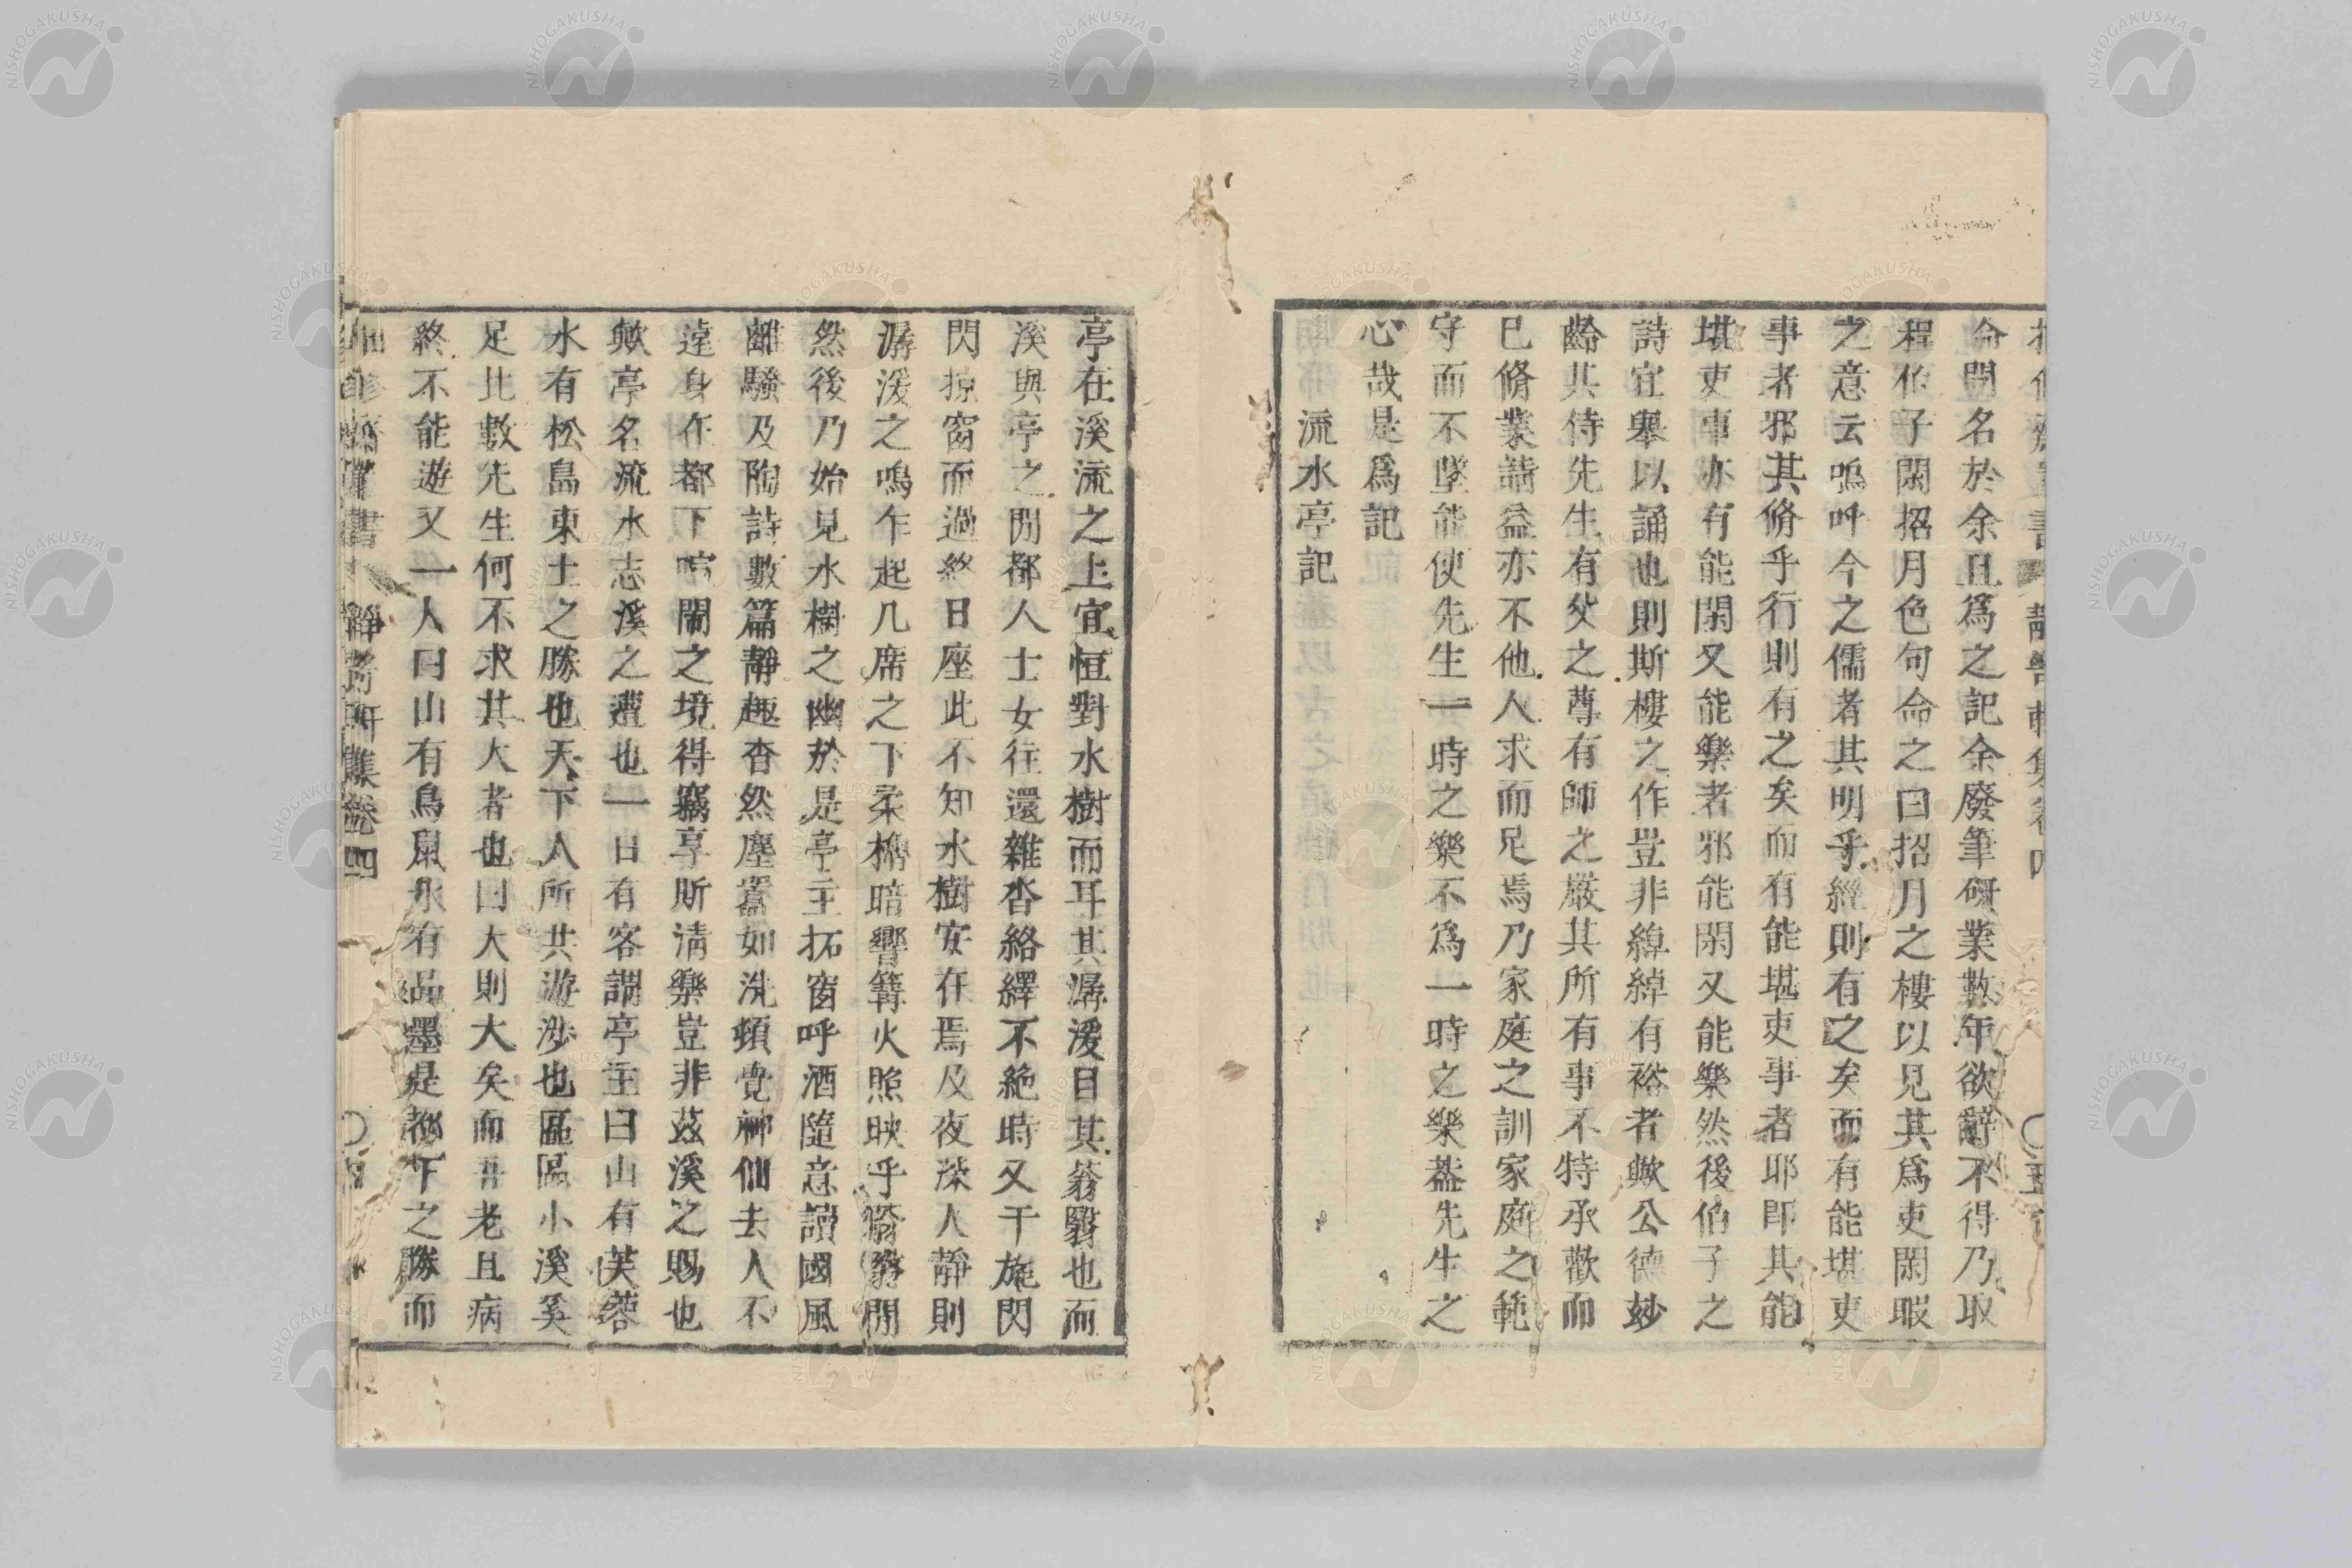 命問名於余且爲之記余廢筆硏業數年欲辭不得乃取
程伯子閑招月色句命之曰招月之樓以見其爲吏閑暇
之意云嗚呼今之儒者其明乎經則有之矣而有能堪吏
事者邪其脩乎行則有之矣而有能堪吏事者耶即其能
堪吏事亦有能閑又能樂者邪能閑又能樂然後伯子之
詩宜擧以誦也則斯樓之作豈非綽綽有裕者歟公德妙
齡其侍先生有父之尊有師之嚴其所有事不特承歡而
已脩業請益亦不他人求而足焉乃家庭之訓家庭之範
守而不墜能使先生一時之樂不爲一時之樂蓋先生之
心哉是爲記
流水亭記
亭在溪流之上宜恒對水樹而耳其潺湲日其蓊翳也而
溪與亭之間都人士女往還雜沓絡繹不絶時又干旄閃
閃掠窗而過終日座此不知水樹安在焉及夜深人靜則
潺湲之鳴乍起几席之下柔櫓暗響篝火照映乎蓊翳間
然後乃始見水樹之幽於是亭主拓窗呼酒隨意讀國風
離騷及陶詩數篇靜趣杳然塵囂如洗頓覺神仙去人不
遠身在都下喧鬧之境得竊享斯淸樂豈非茲溪之賜也
歟亭名流水志溪之遭也一日有客謂亭主曰山有芙蓉
水有松島東土之勝也天下人所共游涉也區區小溪奚
足比數先生何不求其大者也曰大則大矣而吾老且病
終不能遊又一人曰山有鳥鼠水有品墨是都下之勝而
靜寄軒集卷四